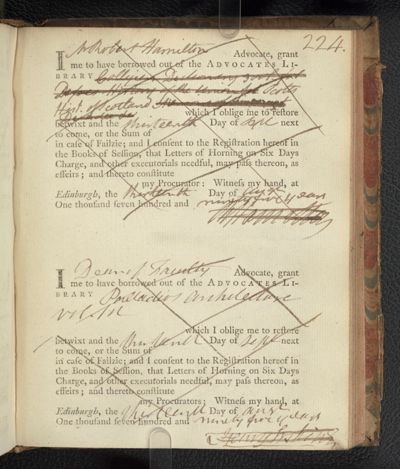 224.
I Mr Robert Hamilton Advocate, grant
me to have borrowed out of the ADVOCATES LI-
BRARY
History of Scots
Hist. of Scotland
which I oblige me to restore
betwixt and the thirteenth Day of next
to come, or the Sum of
in case of Failzie; and I consent to the Registration hereof in
the Books of Session, that Letters of Horning on Six Days
Charge, and other executorials needful, may pass thereon, as
effeirs; and thereto constitute
my Procurator: Witness my hand, at
Edinburgh, the thirteenth Day of
One thousand seven hundred and ninety five years
I Dean of Faculty Advocate, grant
me to have borrowed out of the ADVOCATES LI-
BRARY Palladio's Architecture
vol. 1st
which I oblige me to restore
betwixt and the Day of Sept next
to come, or the Sum of
in case of Failzie; and I consent to the Registration hereof in
the Books of Session, that Letters of Horning on Six Days
Charge, and other executorials needful, may pass thereon, as
effeirs; and thereto constitute
my Procurators; Witness my hand, at
Edinburgh, the Day of
One thousand seven hundred and ninety five years